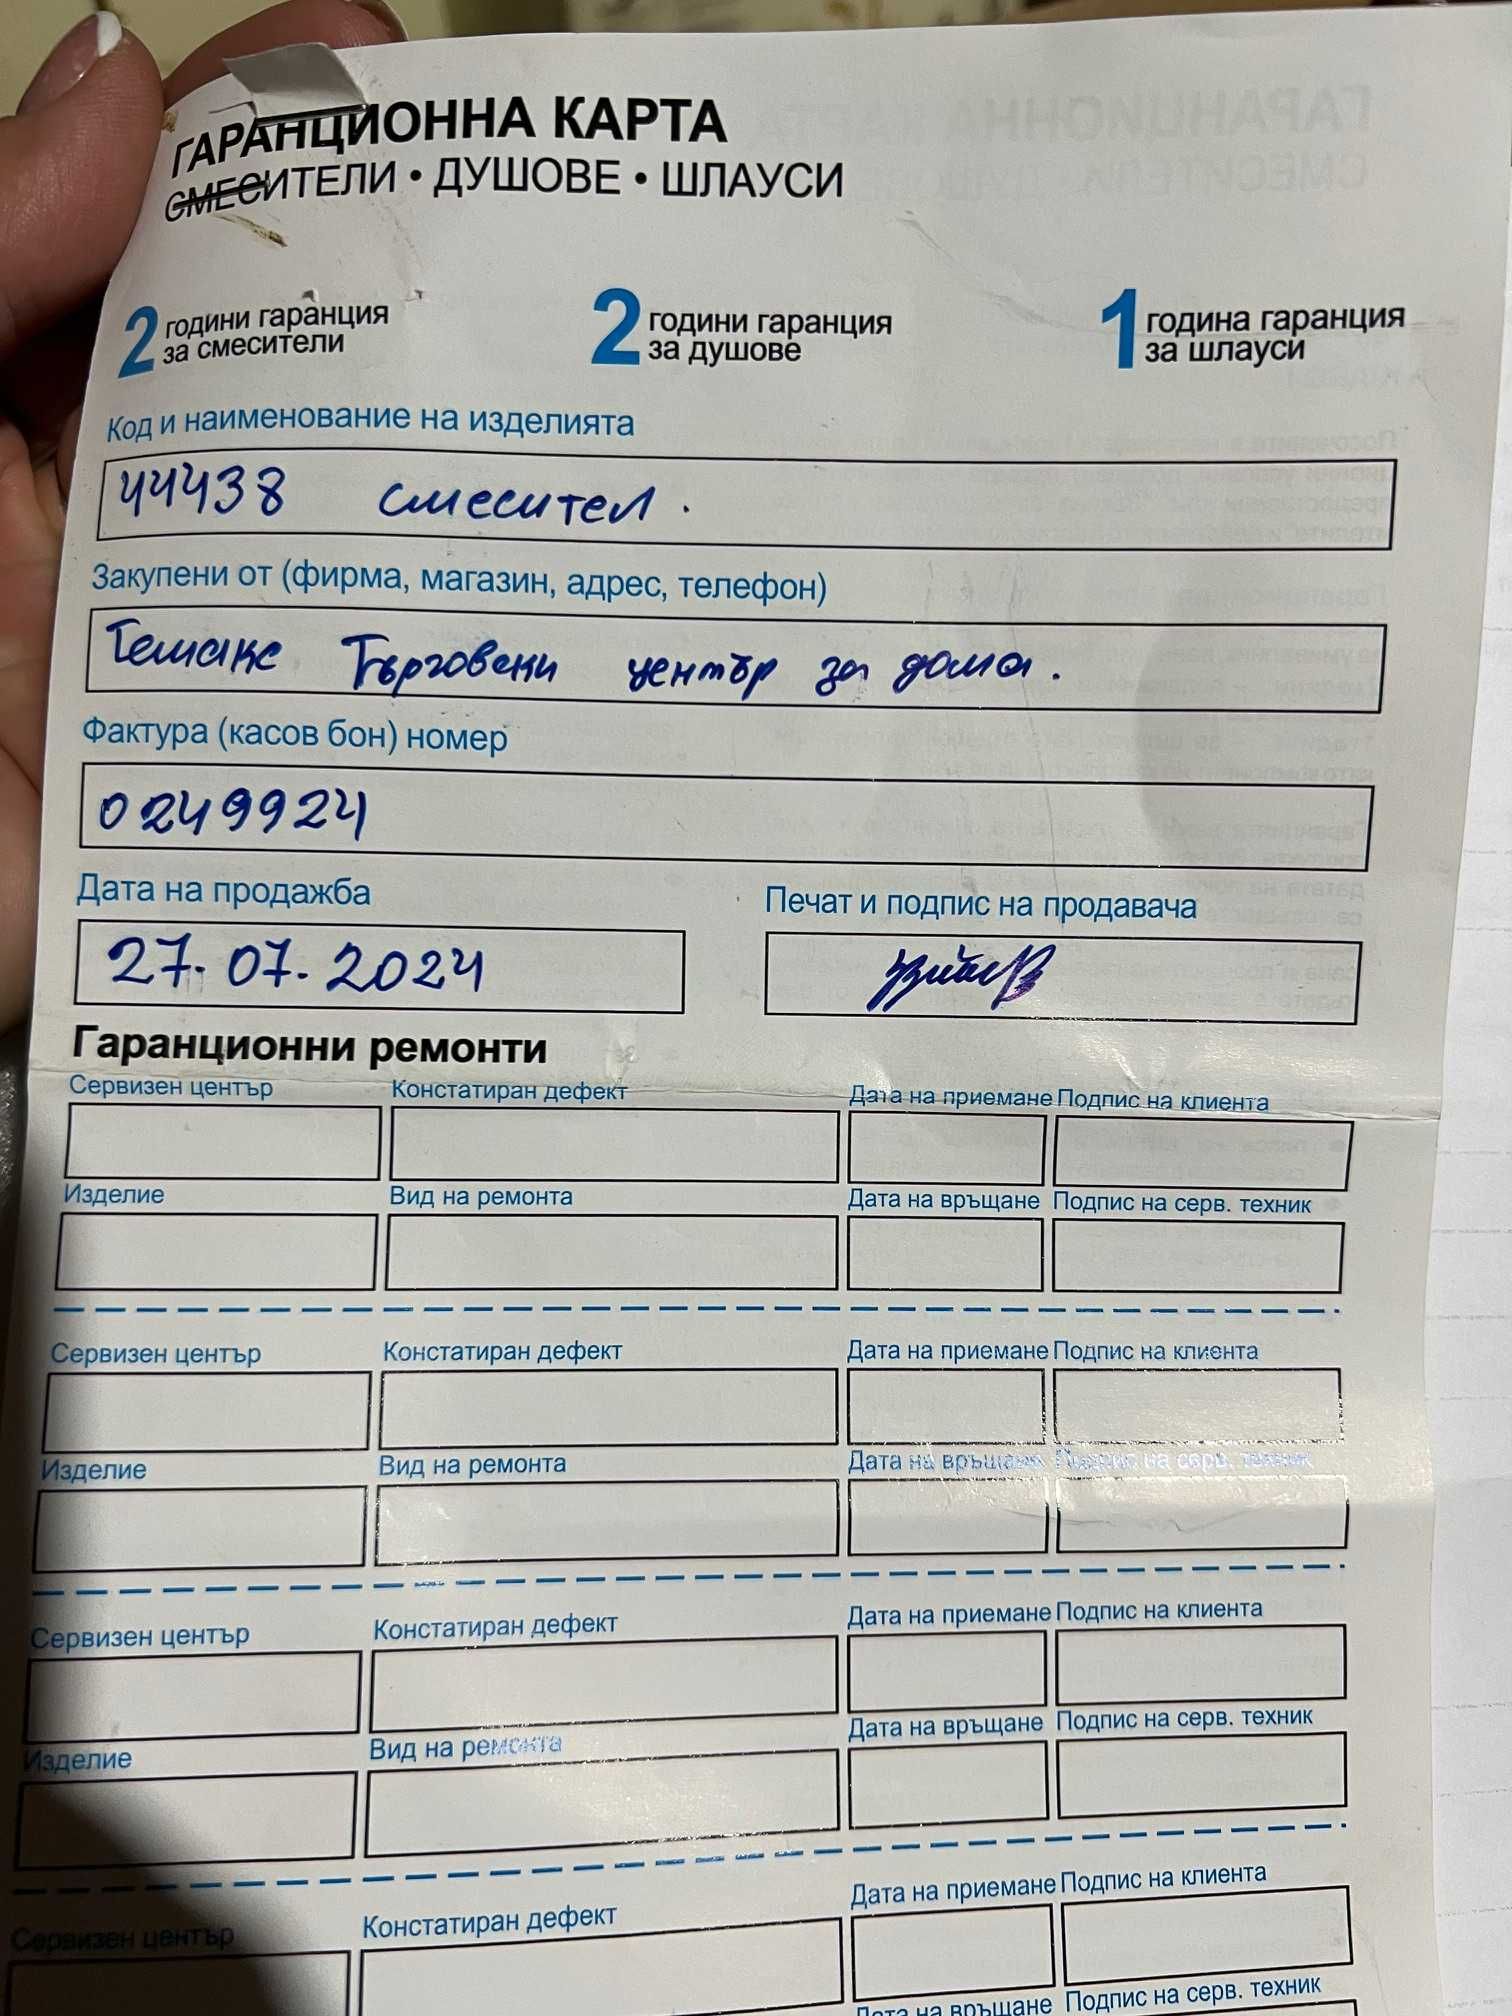 ГАРАНЦИОННА КАРТА
СМЕСИТЕЛИ • ДУШОВЕ • ШЛАУСИ
2 години гаранция за смесители
2 години гаранция за душове
1 година гаранция за шлауси
Код и наименование на изделията
44438 смесител.
Закупени от (фирма, магазин, адрес, телефон)
Темакс Търговски център за дома.
Фактура (касов бон) номер
0249924
Дата на продажба Печат и подпис на продавача
27.07.2024
Гаранционни ремонти
Сервизен център Констатиран дефект Дата на приемане Подпис на клиента
Изделие Вид на ремонта Дата на връщане Подпис на серв. техник
Сервизен център Констатиран дефект Дата на приемане Подпис на клиента
Изделие Вид на ремонта Дата на връщане Подпис на серв. техник
Сервизен център Констатиран дефект Дата на приемане Подпис на клиента
Изделие Вид на ремонта Дата на връщане Подпис на серв. техник
Сервизен център Констатиран дефект Дата на приемане Подпис на клиента
Дата на връщане Подпис на серв. техник